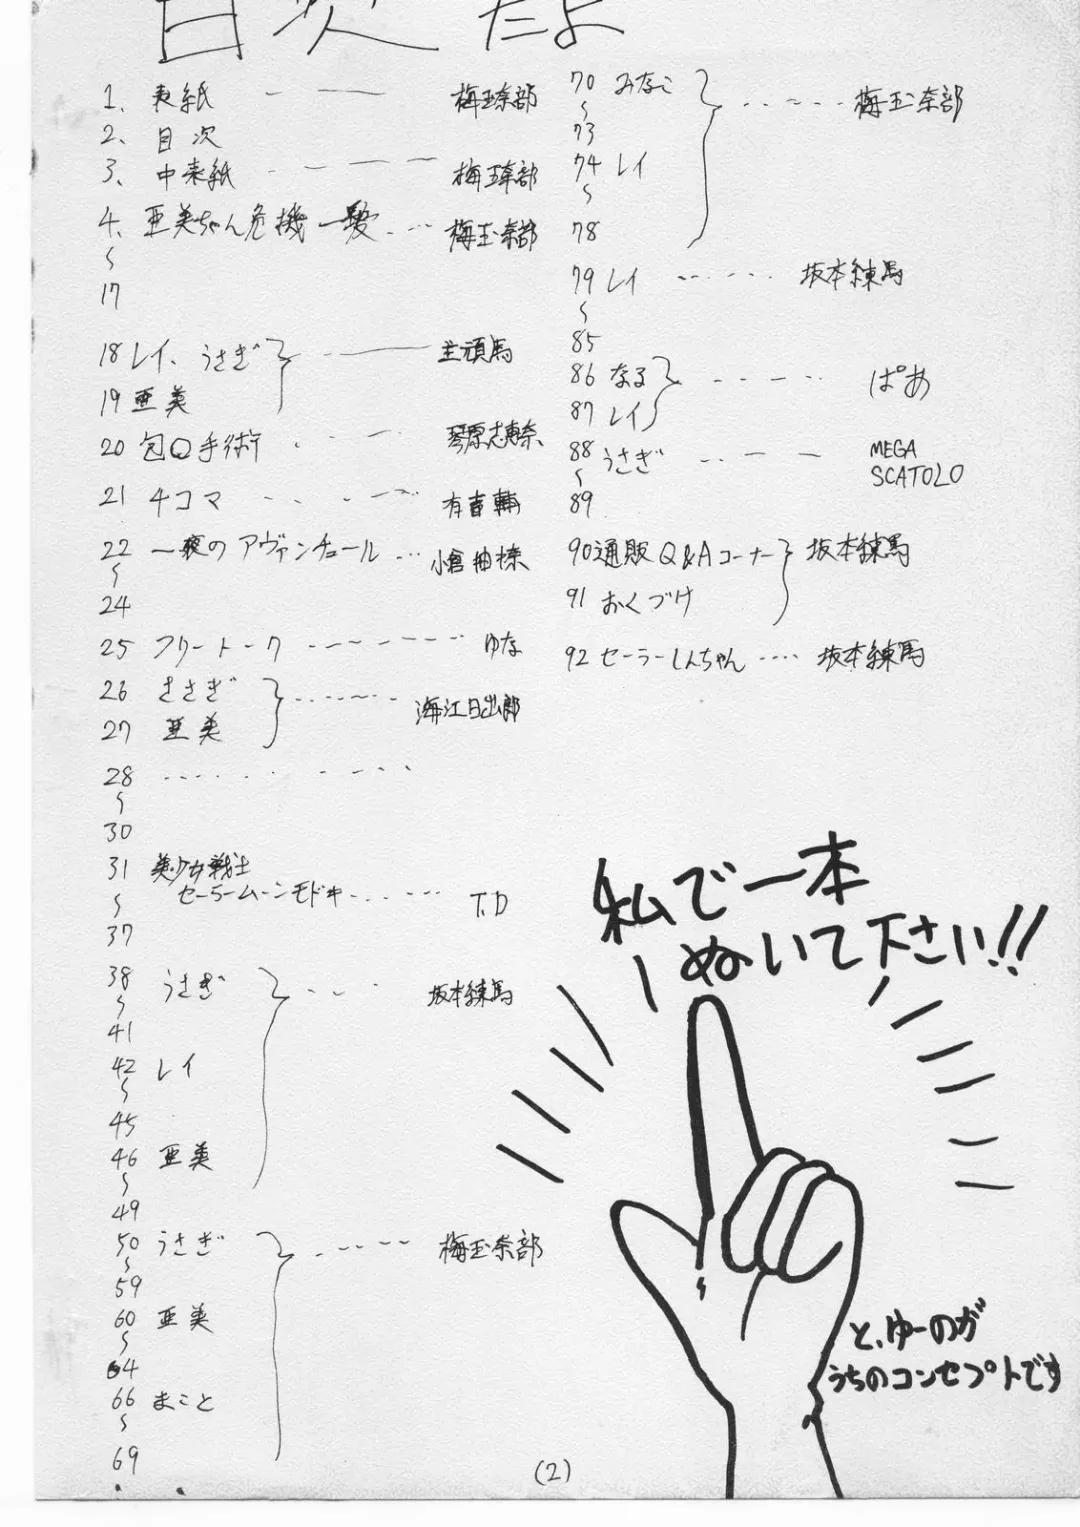 目次だよ
1. 表紙 梅玉奈部
2. 目次
3. 中表紙 梅玉奈部
4. 亜美ちゃん危機一髪 梅玉奈部
〜
17
18 レイ、うさぎ 主頑馬
19 亜美
20 包〇手術 琴原志恵奈
21 4コマ
22 一夜のアヴァンチュール
〜
24
25 フリートーク ゆな
26 うさぎ 海江日出郎
27 亜美
28
〜
30
31 美少女戦士
セーらームーンモドキ T.D
〜
37
38 うさぎ 坂本練馬
〜
41
42 レイ
〜
45
46 亜美
〜
49
50 うさぎ 梅玉奈部
〜
59
60 亜美
〜
64
66 まこと
〜
69
70 みなこ 梅玉奈部
〜
73
74 レイ
〜
78
79 レイ 坂本練馬
〜
85
86 なる ぱあ
87 レイ
88 うさぎ MEGA
SCATOLO
〜
89
90 通販Q&Aコーナー 坂本練馬
91 おくづけ
92 セーラーしんちゃん 坂本練馬
私で一本
ぬいて下さい!!
と、ゆーのが
うちのコンセプトです
(2)